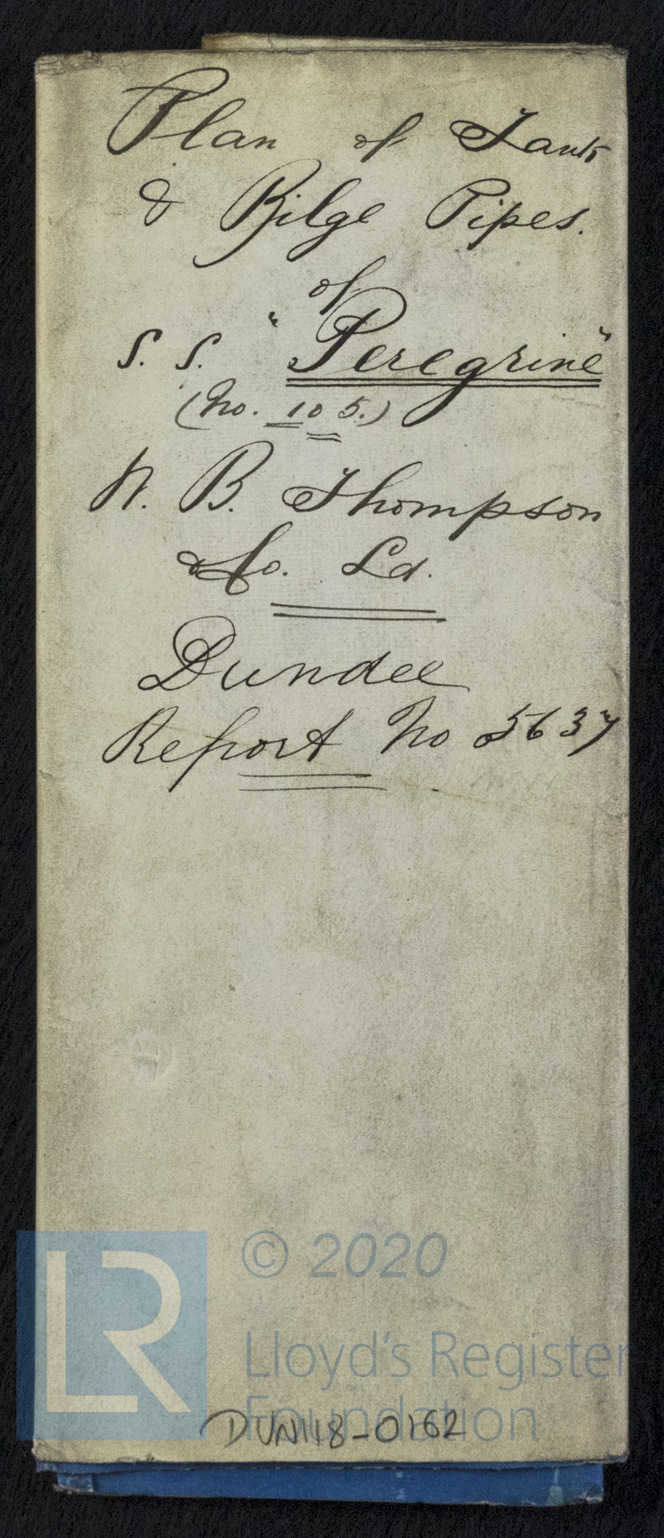 Plan of Tank
& Bilge Pipes.
of
S. S. "Peregrine"
(No. 105.)
W. B. Thompson
& Co. Ld.
Dundee
Report No 5637
LR
© 2020
Lloyd's Register
Foundation
DUN118-0162